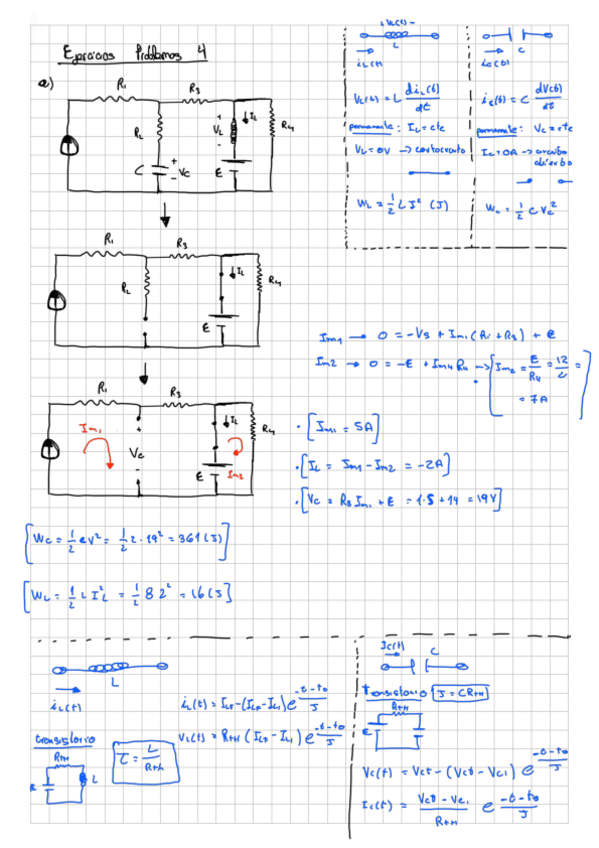 Ejercicios Problemas 4
a)
R1
R3
R2
+
VL
-
IL
R4
C
+
- Vc
E
R1
R3
R2
IL
R4
E
R1
R3
Im1
+
Vc
-
IL
R4
E
Im2
L
iL(t)
VL(t) = L diL(t)/dt
permanente: IL = cte
VL = 0V → cortocircuito
WL = 1/2 L I² (J)
C
ic(t)
ic(t) = C dVc(t)/dt
permanente: Vc = cte
Ic = 0A → circuito
abierto
Wc = 1/2 C Vc²
Im1 → 0 = -VS + Im1 (R1 + R3) + E
Im2 → 0 = -E + Im4 R4 → [Im2 = E/R4 =
= 7A
· [Im1 = 5A]
· [IL = Im1 - Im2 = -2A]
· [Vc = R3 Im1 + E = 1·5 + 14 = 19V]
[Wc = 1/2 cv² = 1/2 2·19² = 361 (J)]
[WL = 1/2 L I²L = 1/2 8 2² = 16 (J)]
L
iL(t)
transistorio
RTH
L
τ = L/RTh
iL(t) = ILF - (ILF - ILI) e^-t-t0/J
VL(t) = RTH (ILF - ILI) e^-t-t0/J
Ic(t)
C
Transistorio [J = CRTH]
RTH
E
Vc(t) = Vct - (Vct - Vci) e^-t-t0/J
Ic(t) = Vct - Vci/RTH e^-t-t0/J